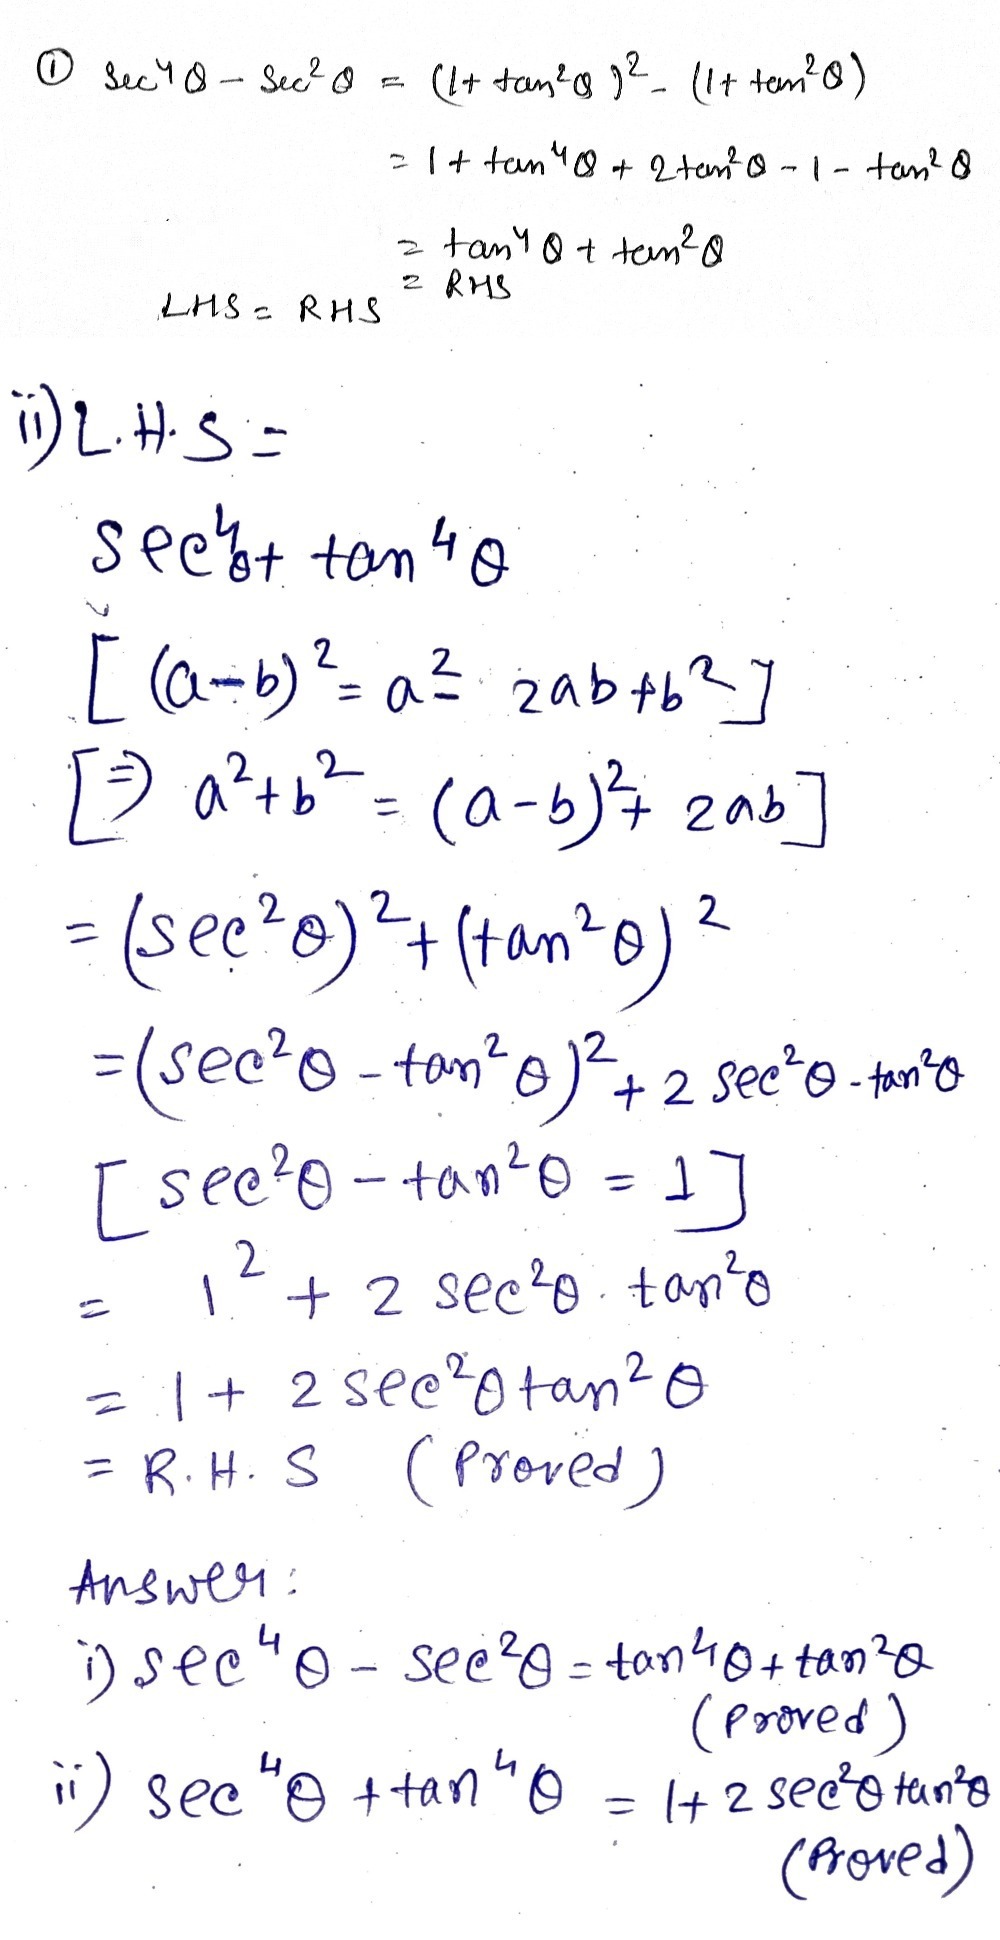 ① sec⁴θ - sec²θ = (1+ tan²θ)² - (1+ tan²θ)
= 1 + tan⁴θ + 2tan²θ - 1 - tan²θ
= tan⁴θ + tan²θ
= RHS
LHS = RHS
ii) L.H.S =
sec⁴θ + tan⁴θ
[(a-b)² = a² - 2ab + b²]
[⇒ a² + b² = (a-b)² + 2ab]
= (sec²θ)² + (tan²θ)²
= (sec²θ - tan²θ)² + 2 sec²θ - tan²θ
[sec²θ - tan²θ = 1]
= 1² + 2 sec²θ . tan²θ
= 1 + 2 sec²θ tan²θ
= R.H.S (Proved)
Answer:
i) sec⁴θ - sec²θ = tan⁴θ + tan²θ
(Proved)
ii) sec⁴θ + tan⁴θ = 1 + 2 sec²θ tan²θ
(Proved)